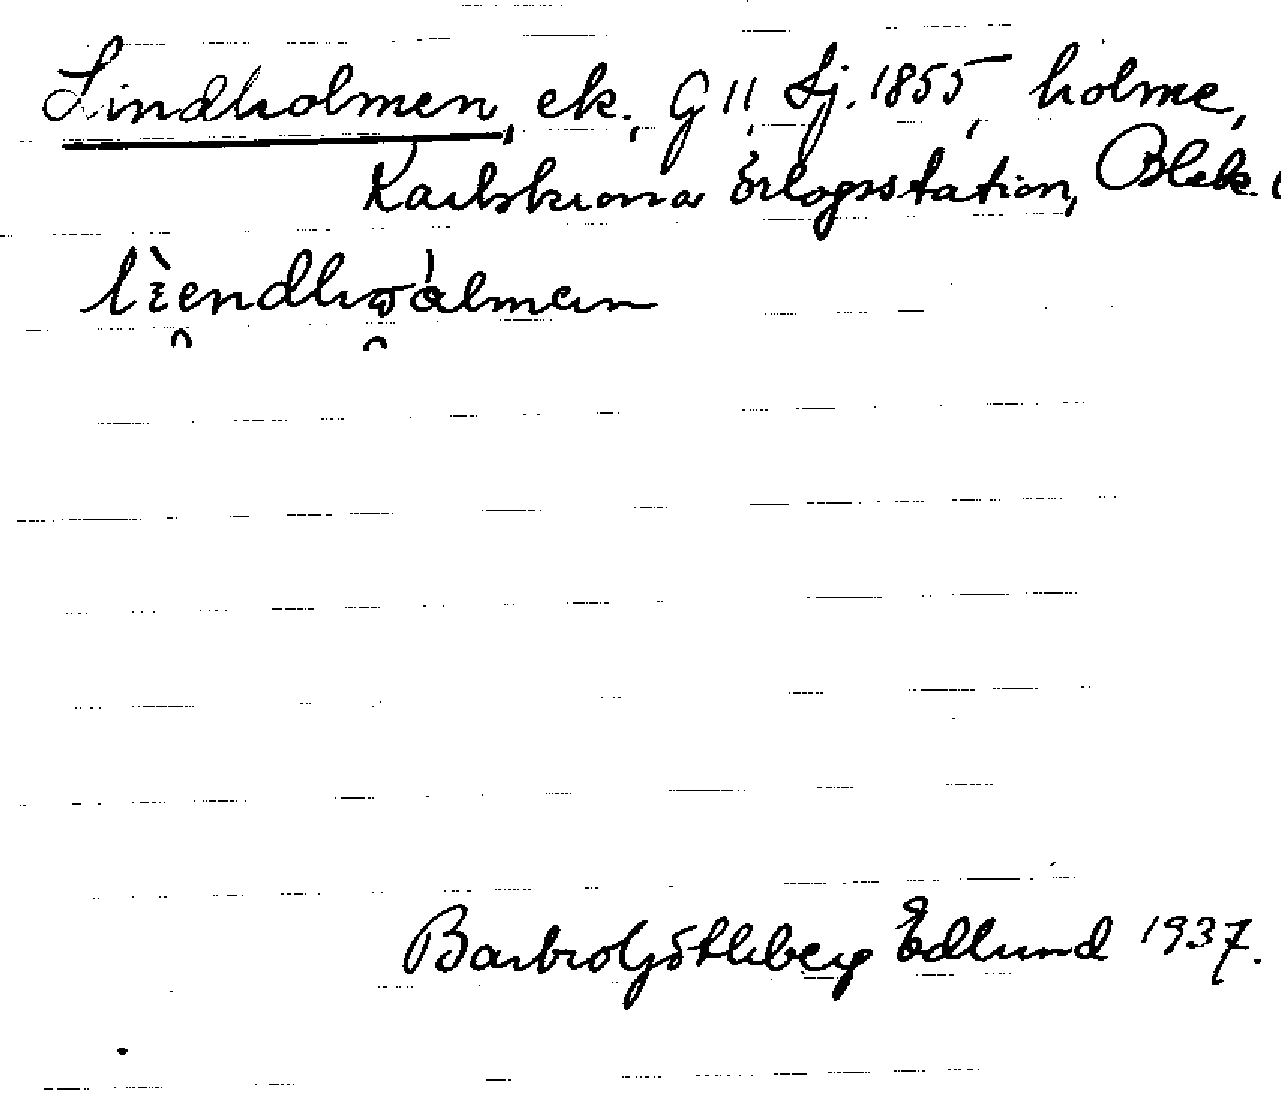 Lindholmen, ek. G 11, Sj. 1855, holme,
Karlskrona örlogsstation, Blek.
Barbro Götleberg Edlund 1937.